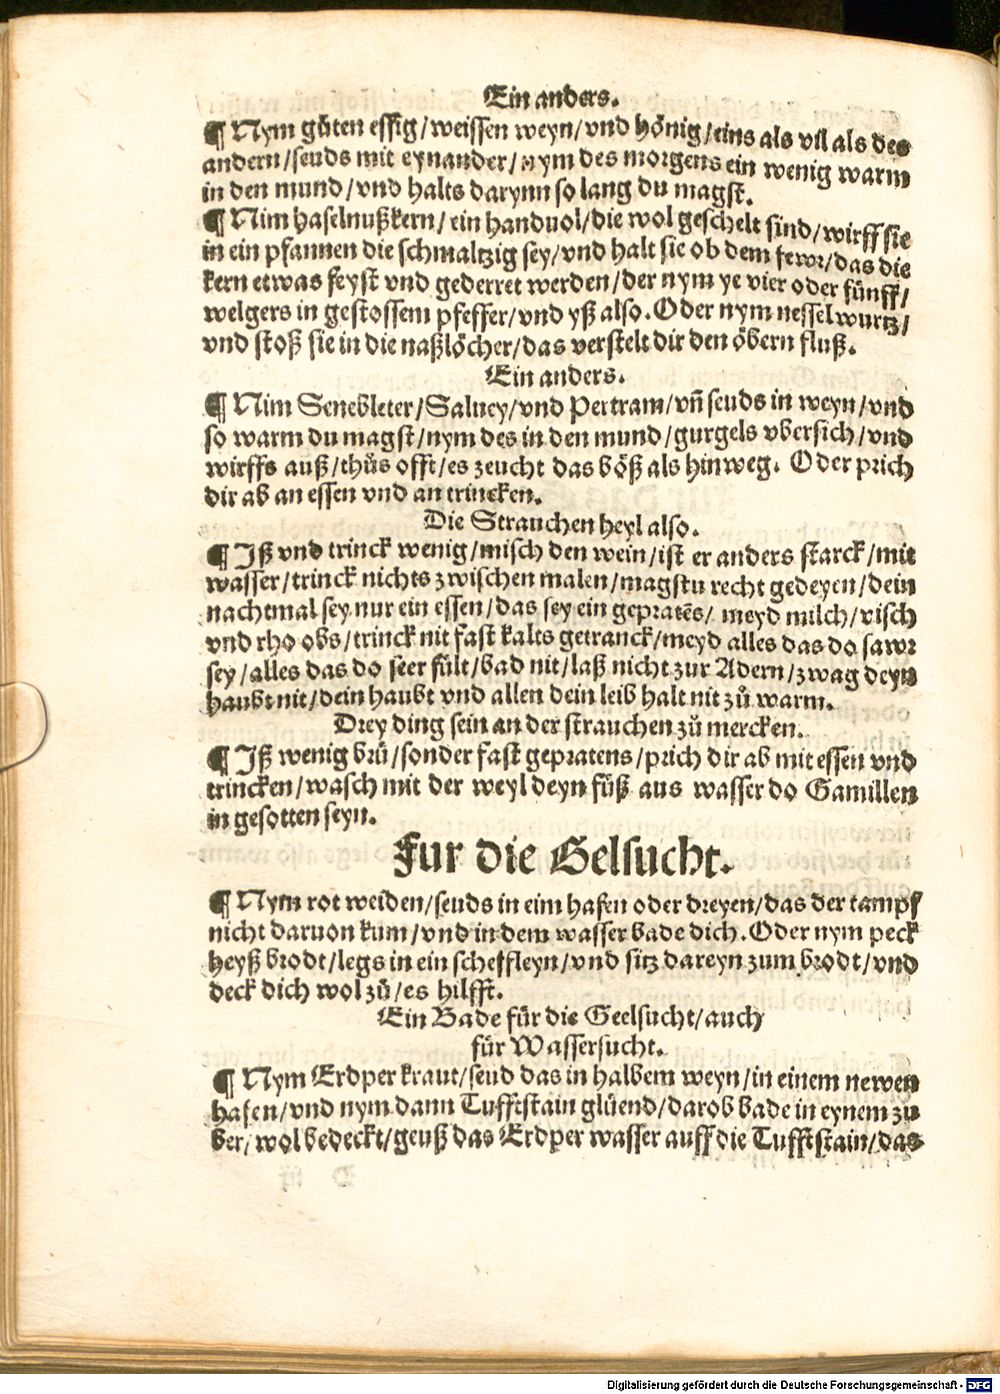 Ein anders.
¶ Nym gůten essig/weissen weyn/vnd hönig/eins als vil als des
andern/seuds mit eynander/nym des morgens ein wenig warm
in den mund/vnd halts darynn so lang du magst.
¶ Nim haselnußkern/ein handuol/die wol geschelt sind/wirff sie
in ein pfannen die schmaltzig sey/vnd halt sie ob dem fewr/das die
kern etwas feyst vnd gederret werden/der nym ye vier oder fünff/
welgers in gestossem pfeffer/vnd yß also. Oder nym nesselwurtz/
vnd stoß sie in die naßlöcher/das verstelt dir den öbern fluß.
Ein anders.
¶ Nim Senebleter/Saluey/vnd Pertram/vñ seuds in weyn/vnd
so warm du magst/nym des in den mund/gurgels vbersich/vnd
wirffs auß/thůs offt/es zeucht das böß als hinweg. Oder prich
dir ab an essen vnd an trincken.
Die Strauchen heyl also.
¶ Iß vnd trinck wenig/misch den wein/ist er anders starck/mit
wasser/trinck nichts zwischen malen/magstu recht gedeyen/dein
nachtmal sey nur ein essen/das sey ein gepratēs/ meyd milch/visch
vnd rho obs/trinck nit fast kalts getranck/meyd alles das do sawr
sey/alles das do seer fült/bad nit/laß nicht zur Adern/zwag deyn
haubt nit/dein haubt vnd allen dein leib halt nit zů warm.
Drey ding sein an der strauchen zů mercken.
¶ Iß wenig brů/sonder fast gepratens/prich dir ab mit essen vnd
trincken/wasch mit der weyl deyn füß aus wasser do Gamillen
in gesotten seyn.
Fur die Gelsucht.
¶ Nym rot weiden/seuds in eim hafen oder dreyen/das der tampf
nicht daruon kum/vnd in dem wasser bade dich. Oder nym peck
heyß brodt/legs in ein scheffleyn/vnd sitz dareyn zum brodt/vnd
deck dich wol zů/es hilfft.
Ein Bade für die Geelsucht/auch
für Wassersucht.
¶ Nym Erdper kraut/seud das in halbem weyn/in einem newen
hafen/vnd nym dann Tufftstain glüend/darob bade in eynem zu
ber/wol bedeckt/geuß das Erdper wasser auff die Tufftstain/das
Digitalisierung gefördert durch die Deutsche Forschungsgemeinschaft - DFG